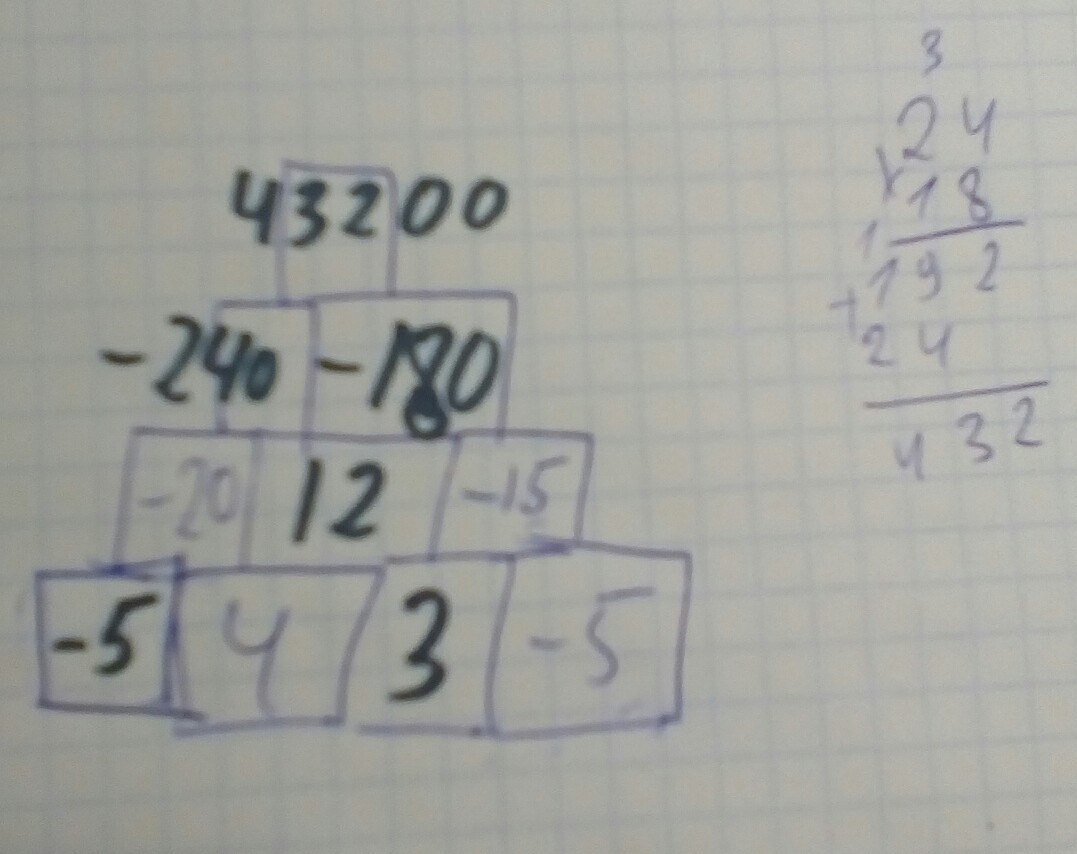 43200
-240 -180
-20 12 -15
-5 4 3 -5
3
24
x 18
1
192
+
24
432